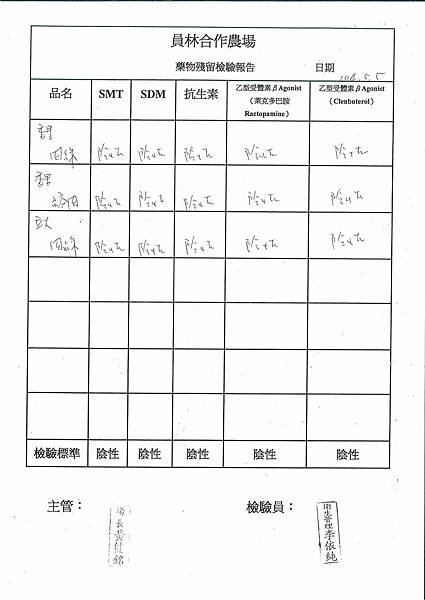 員林合作農場
藥物殘留檢驗報告 日期 104.5.5
品名 SMT SDM 抗生素 乙型受體素βAgonist（萊克多巴胺 Ractopamine） 乙型受體素βAgonist（Clenbuterol）
陰性 陰性 陰性 陰性 陰性
陰性 陰性 陰性 陰性 陰性
陰性 陰性 陰性 陰性 陰性
檢驗標準 陰性 陰性 陰性 陰性 陰性
主管： 場長黃健銘 檢驗員： 衛生管理李依純